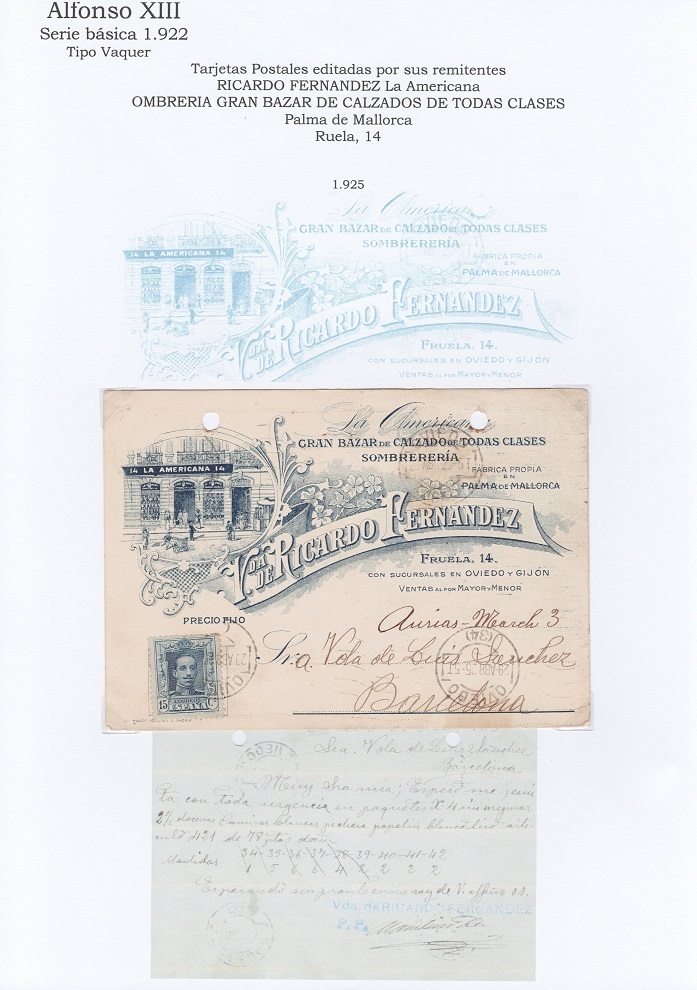 Alfonso XIII
Serie básica 1.922
Tipo Vaquer
Tarjetas Postales editadas por sus remitentes
RICARDO FERNANDEZ La Americana
OMBRERIA GRAN BAZAR DE CALZADOS DE TODAS CLASES
Palma de Mallorca
Ruela, 14
1.925
La Americana
GRAN BAZAR DE CALZADO DE TODAS CLASES
SOMBRERERÍA
14 LA AMERICANA 14
FÁBRICA PROPIA
EN
PALMA DE MALLORCA
VDA DE RICARDO FERNANDEZ
FRUELA, 14.
CON SUCURSALES EN OVIEDO Y GIJÓN
VENTAS AL POR MAYOR Y MENOR
La Americana
GRAN BAZAR DE CALZADO DE TODAS CLASES
SOMBRERERÍA
14 LA AMERICANA 14
FÁBRICA PROPIA
EN
PALMA DE MALLORCA
VDA DE RICARDO FERNANDEZ
FRUELA, 14.
CON SUCURSALES EN OVIEDO Y GIJÓN
VENTAS AL POR MAYOR Y MENOR
PRECIO FIJO
Aurias-March 3
Sra. Vda de Luis Sanchez
Barcelona
15 CORREOS Cs
ESPAÑA
OVIEDO
(34)
Sra. Vda de Luis Sanchez
Barcelona
Muy Sra mia; Espero me remi
ta con toda urgencia en paquetes
2½ docenas Camisas blancas pechera
culo 421 de 78 ptas docna
Medidas 34-35-36-37-38-39-40-41-42
1 5 6 6 4 2 2 2 2
Esperando su de V. affmo s.s.
Vda. de RICARDO FERNANDEZ
P. P.